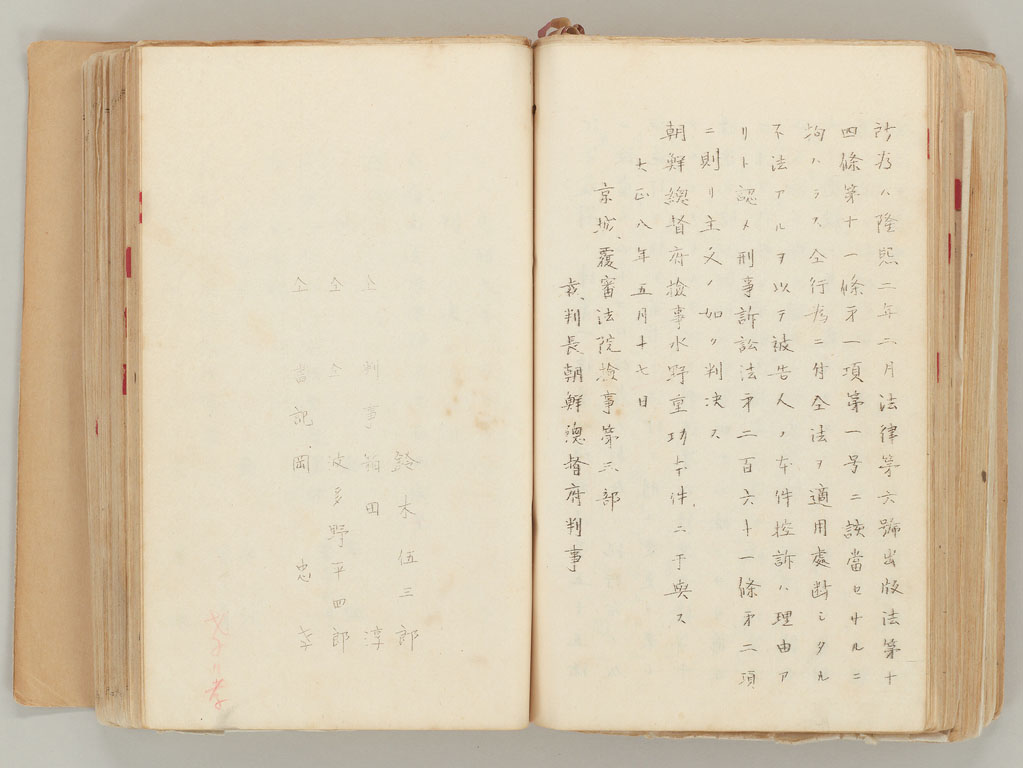 所為ハ隆熙二年二月法律第六號出版法第十
四條第十一條第一項第一号ニ該當セサルニ
拘ハラス仝行為ニ対仝法ヲ適用處断シタル
不法アルヲ以テ被告人ノ本件控訴ハ理由ア
リト認メ刑事訴訟法第二百六十一條第二項
ニ則リ主文ノ如ク判決ス
朝鮮總督府検事水野重功本件ニ干與ス
大正八年五月十七日
京城覆審法院検事第三部
裁判長朝鮮總督府判事
鈴木伍三郎
仝 判事 田淳
仝 仝 波多野平四郎
仝 書記 岡忠幸